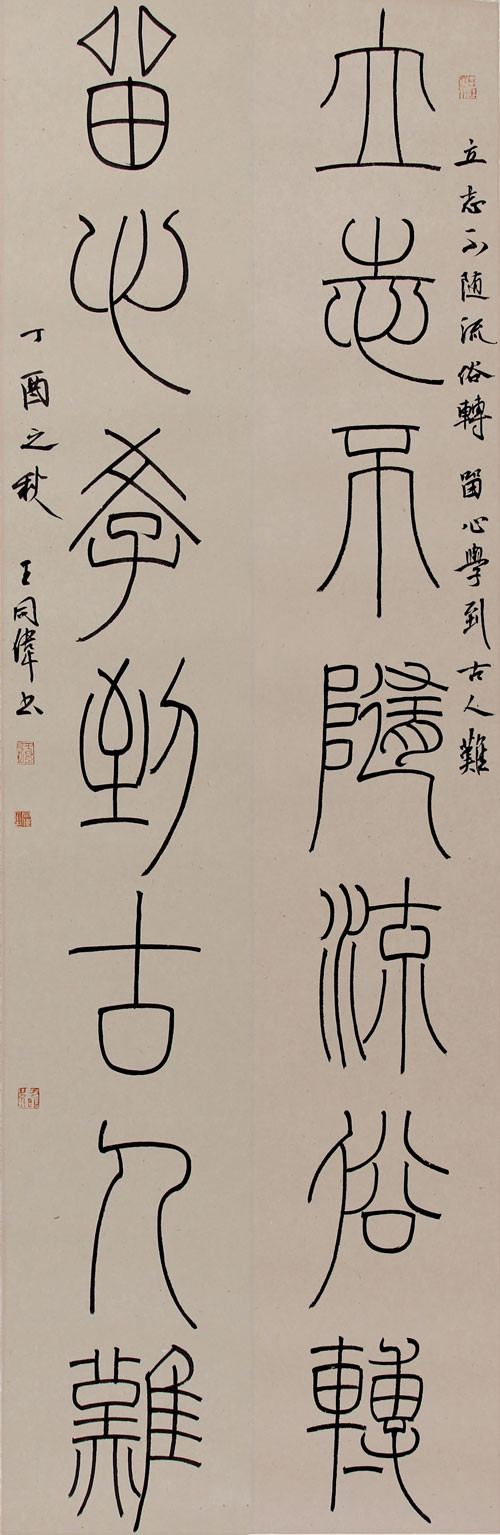 立志不随流俗轉 留心學到古人難
立志不隨流俗轉
留心學到古人難
丁酉之秋 王同偉书